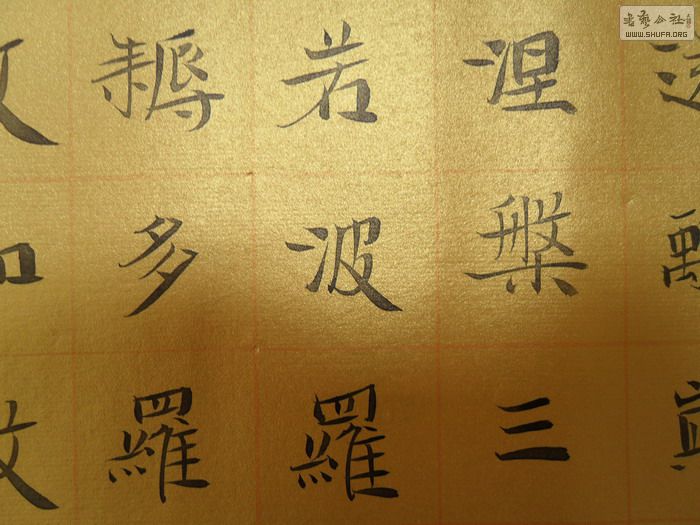 涅槃三
若波羅
耨多羅
書藝公社
WWW.SHUFA.ORG